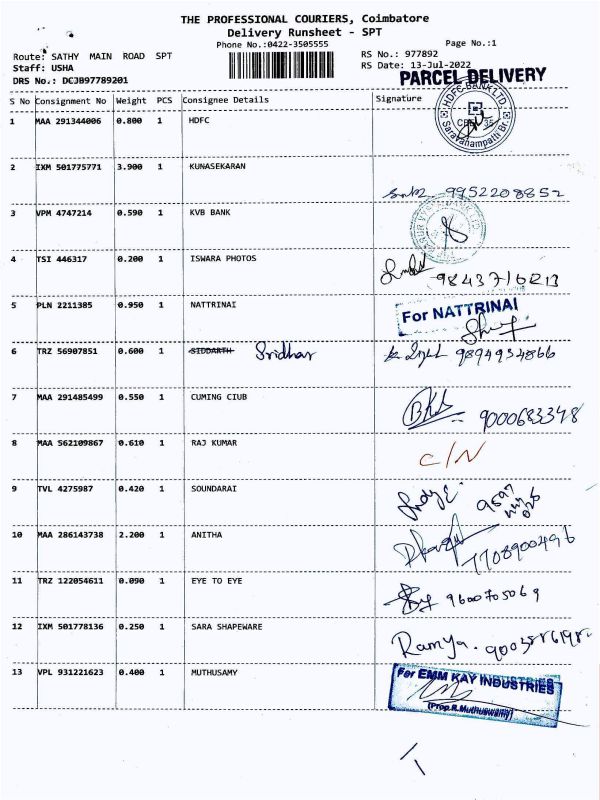 THE PROFESSIONAL COURIERS, Coimbatore
Delivery Runsheet - SPT
Phone No.:0422-3505555
Page No.:1
Route: SATHY MAIN ROAD SPT
RS No.: 977892
Staff: USHA
RS Date: 13-Jul-2022
DRS No.: DCJB97789201
PARCEL DELIVERY
S No Consignment No Weight PCS Consignee Details Signature
HDFC BANK LTD.
Saravanampatti Br.
1 MAA 291344006 0.800 1 HDFC
2 IXM 501775771 3.900 1 KUNASEKARAN
9952208852
3 VPM 4747214 0.590 1 KVB BANK
4 TSI 446317 0.200 1 ISWARA PHOTOS
9843716213
5 PLN 2211385 0.950 1 NATTRINAI
For NATTRINAI
6 TRZ 56907851 0.600 1 SIDDARTH Sridhar 9894954866
7 MAA 291485499 0.550 1 CUMING CIUB
9000683348
8 MAA 562109867 0.610 1 RAJ KUMAR
C/N
9 TVL 4275987 0.420 1 SOUNDARAI
10 MAA 286143738 2.200 1 ANITHA
7708900496
11 TRZ 122054611 0.090 1 EYE TO EYE
9600705069
12 IXM 501778136 0.250 1 SARA SHAPEWARE
Ramya.
13 VPL 931221623 0.400 1 MUTHUSAMY
For EMM KAY INDUSTRIES
(Prop.R.Muthuswamy)